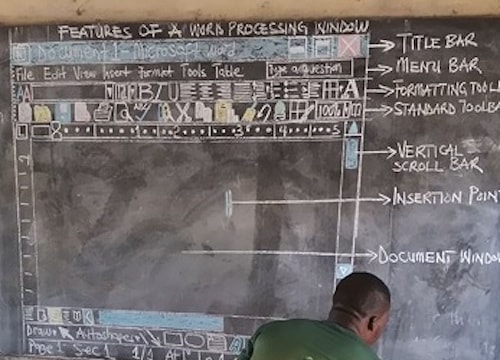 FEATURES OF A WORD PROCESSING WINDOW
Document 1 - Microsoft word
TITLE BAR
File Edit View Insert Format Tools Table
Type a question
MENU BAR
B I U
A
FORMATTING TOOLB
100%
STANDARD TOOLB
1 2 3 4 5
VERTICAL
SCROLL BAR
INSERTION POINT
DOCUMENT WINDOW
Draw Autoshapes
Page 1 Sec 1 1/1 At